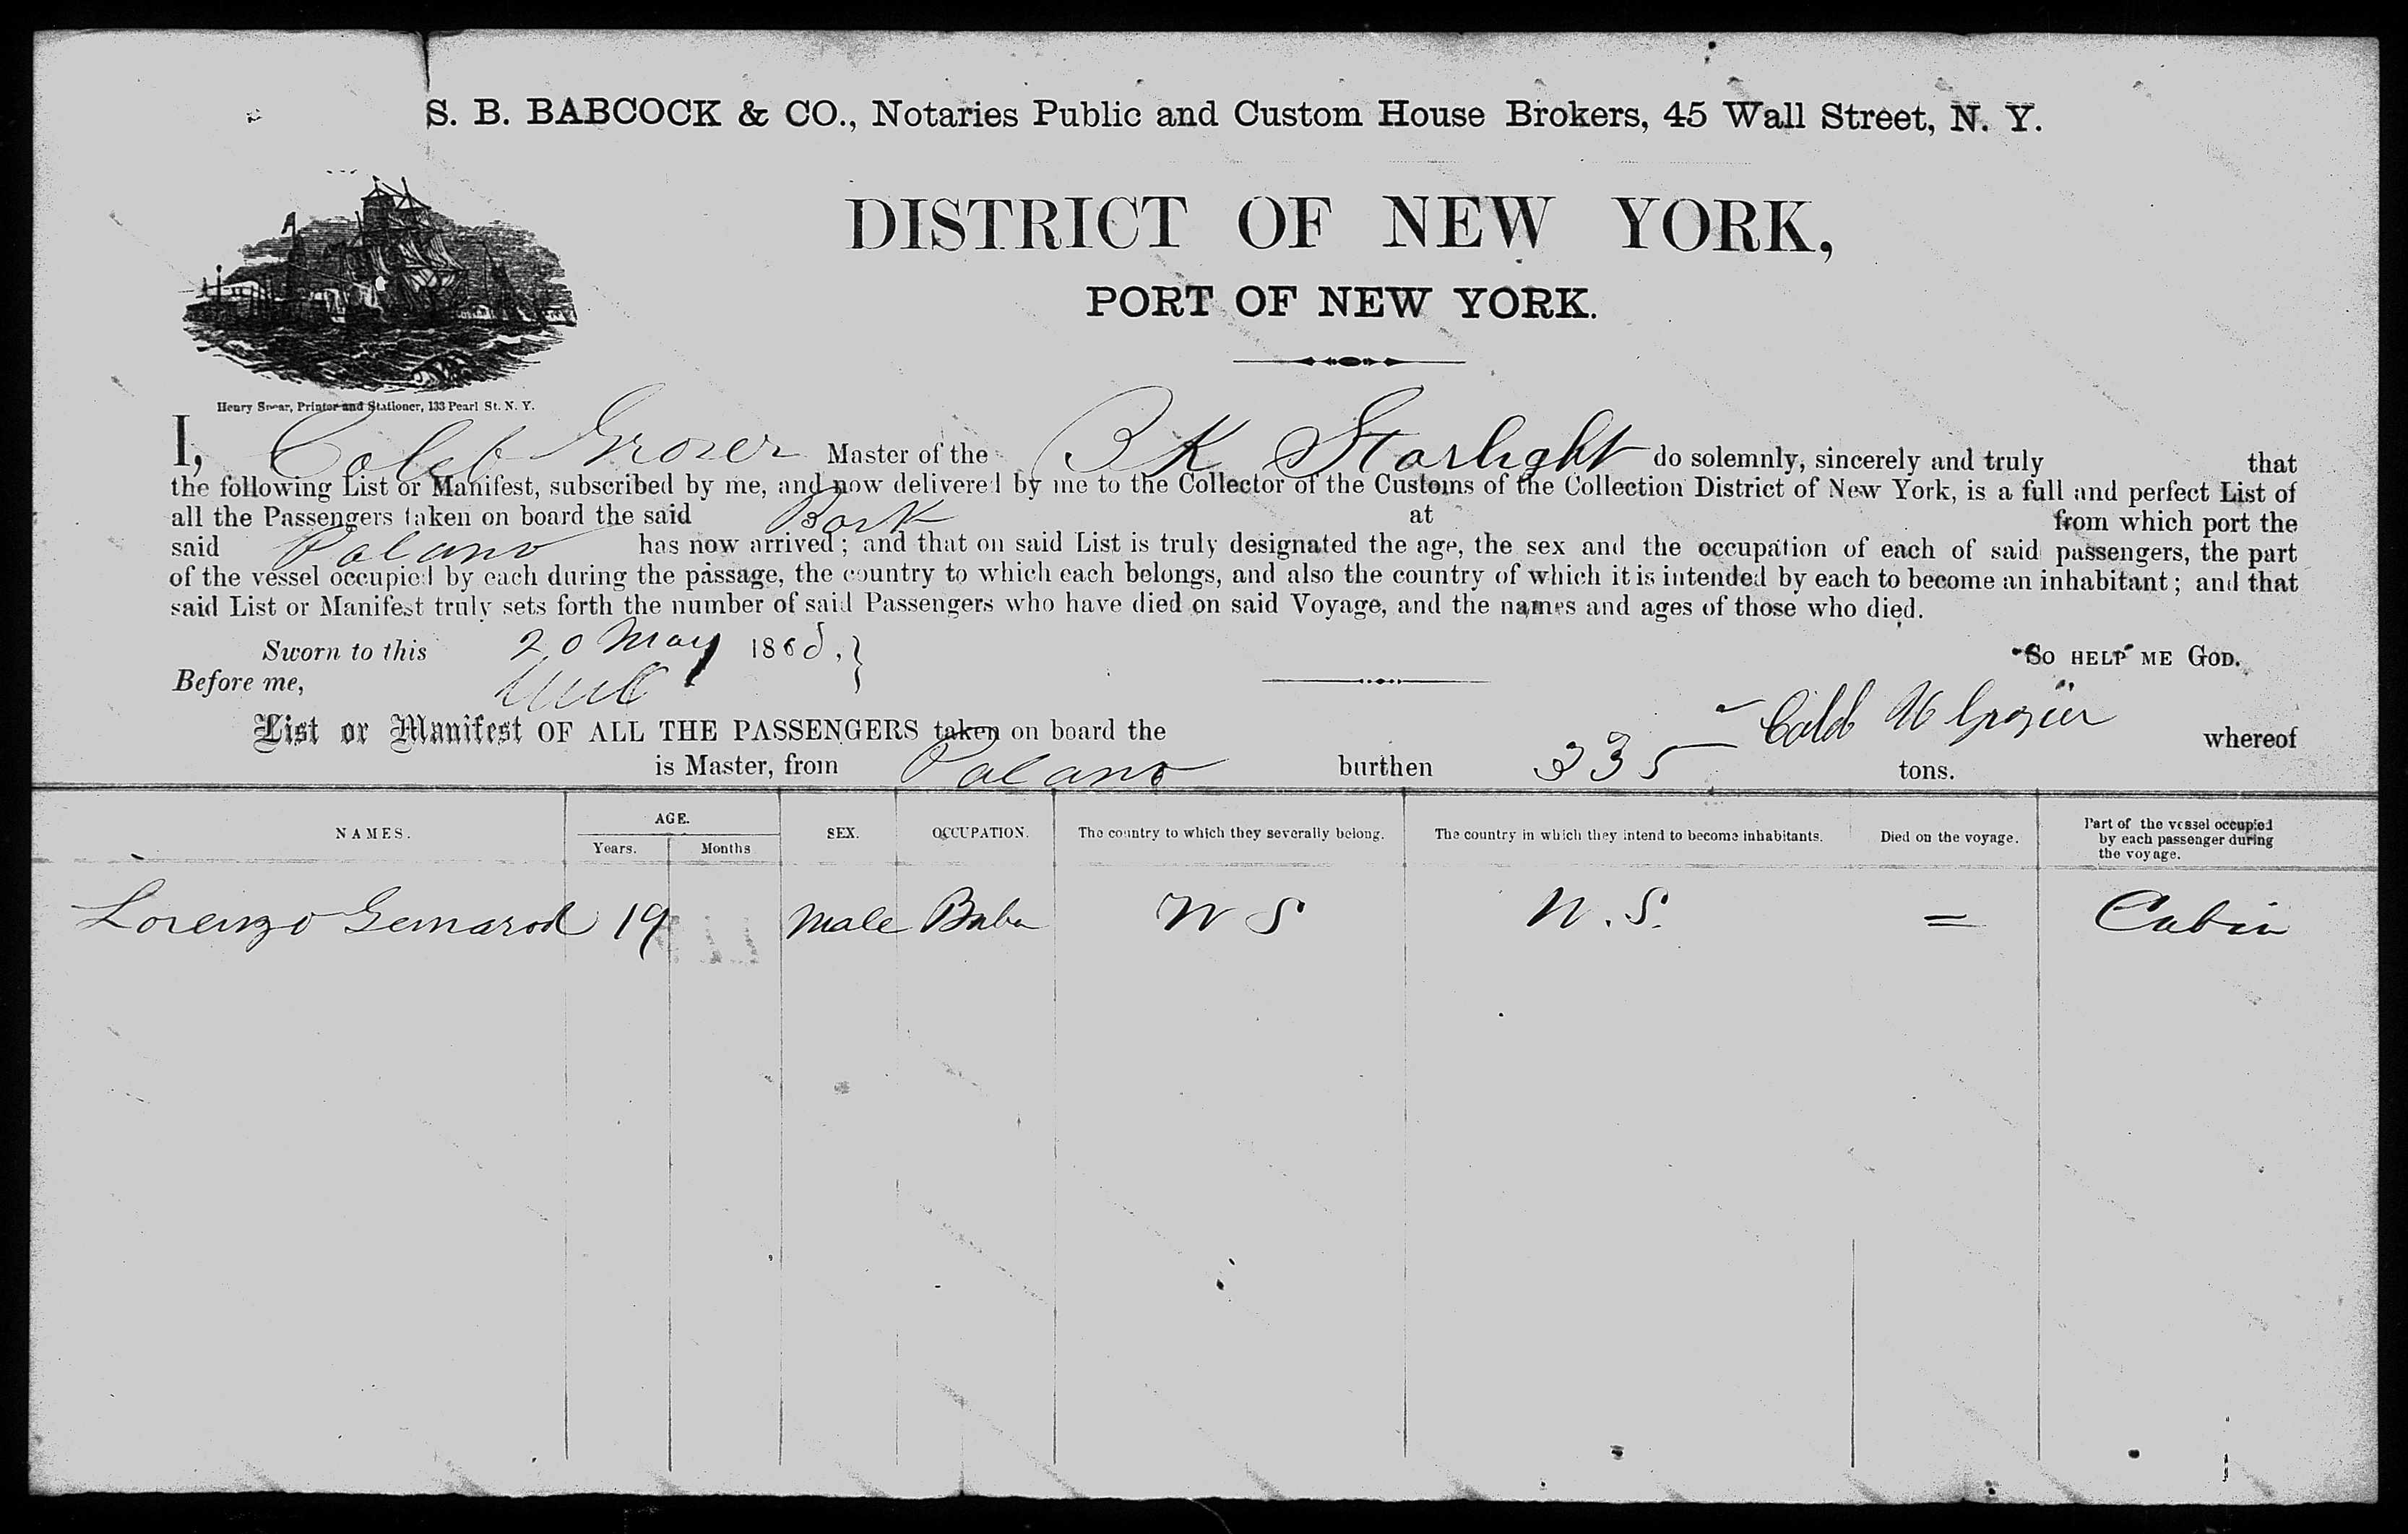 S. B. BABCOCK & CO., Notaries Public and Custom House Brokers, 45 Wall Street, N. Y.
DISTRICT OF NEW YORK,
PORT OF NEW YORK.
Henry Spear, Printer and Stationer, 133 Pearl St. N. Y.
I, Caleb Grozer Master of the BK Starlight do solemnly, sincerely and truly that
the following List or Manifest, subscribed by me, and now delivered by me to the Collector of the Customs of the Collection District of New York, is a full and perfect List of
all the Passengers taken on board the said Bark at from which port the
said has now arrived; and that on said List is truly designated the age, the sex and the occupation of each of said passengers, the part
of the vessel occupied by each during the passage, the country to which each belongs, and also the country of which it is intended by each to become an inhabitant; and that
said List or Manifest truly sets forth the number of said Passengers who have died on said Voyage, and the names and ages of those who died.
Sworn to this 20 May 1868, } So HELP ME GOD.
Before me,
Caleb Grozier
List or Manifest OF ALL THE PASSENGERS taken on board the whereof
is Master, from burthen 335 tons.
NAMES. AGE. Years. Months SEX. OCCUPATION. The country to which they severally belong. The country in which they intend to become inhabitants. Died on the voyage. Part of the vessel occupied by each passenger during the voyage.
Lorenzo 19 Male = Cabin